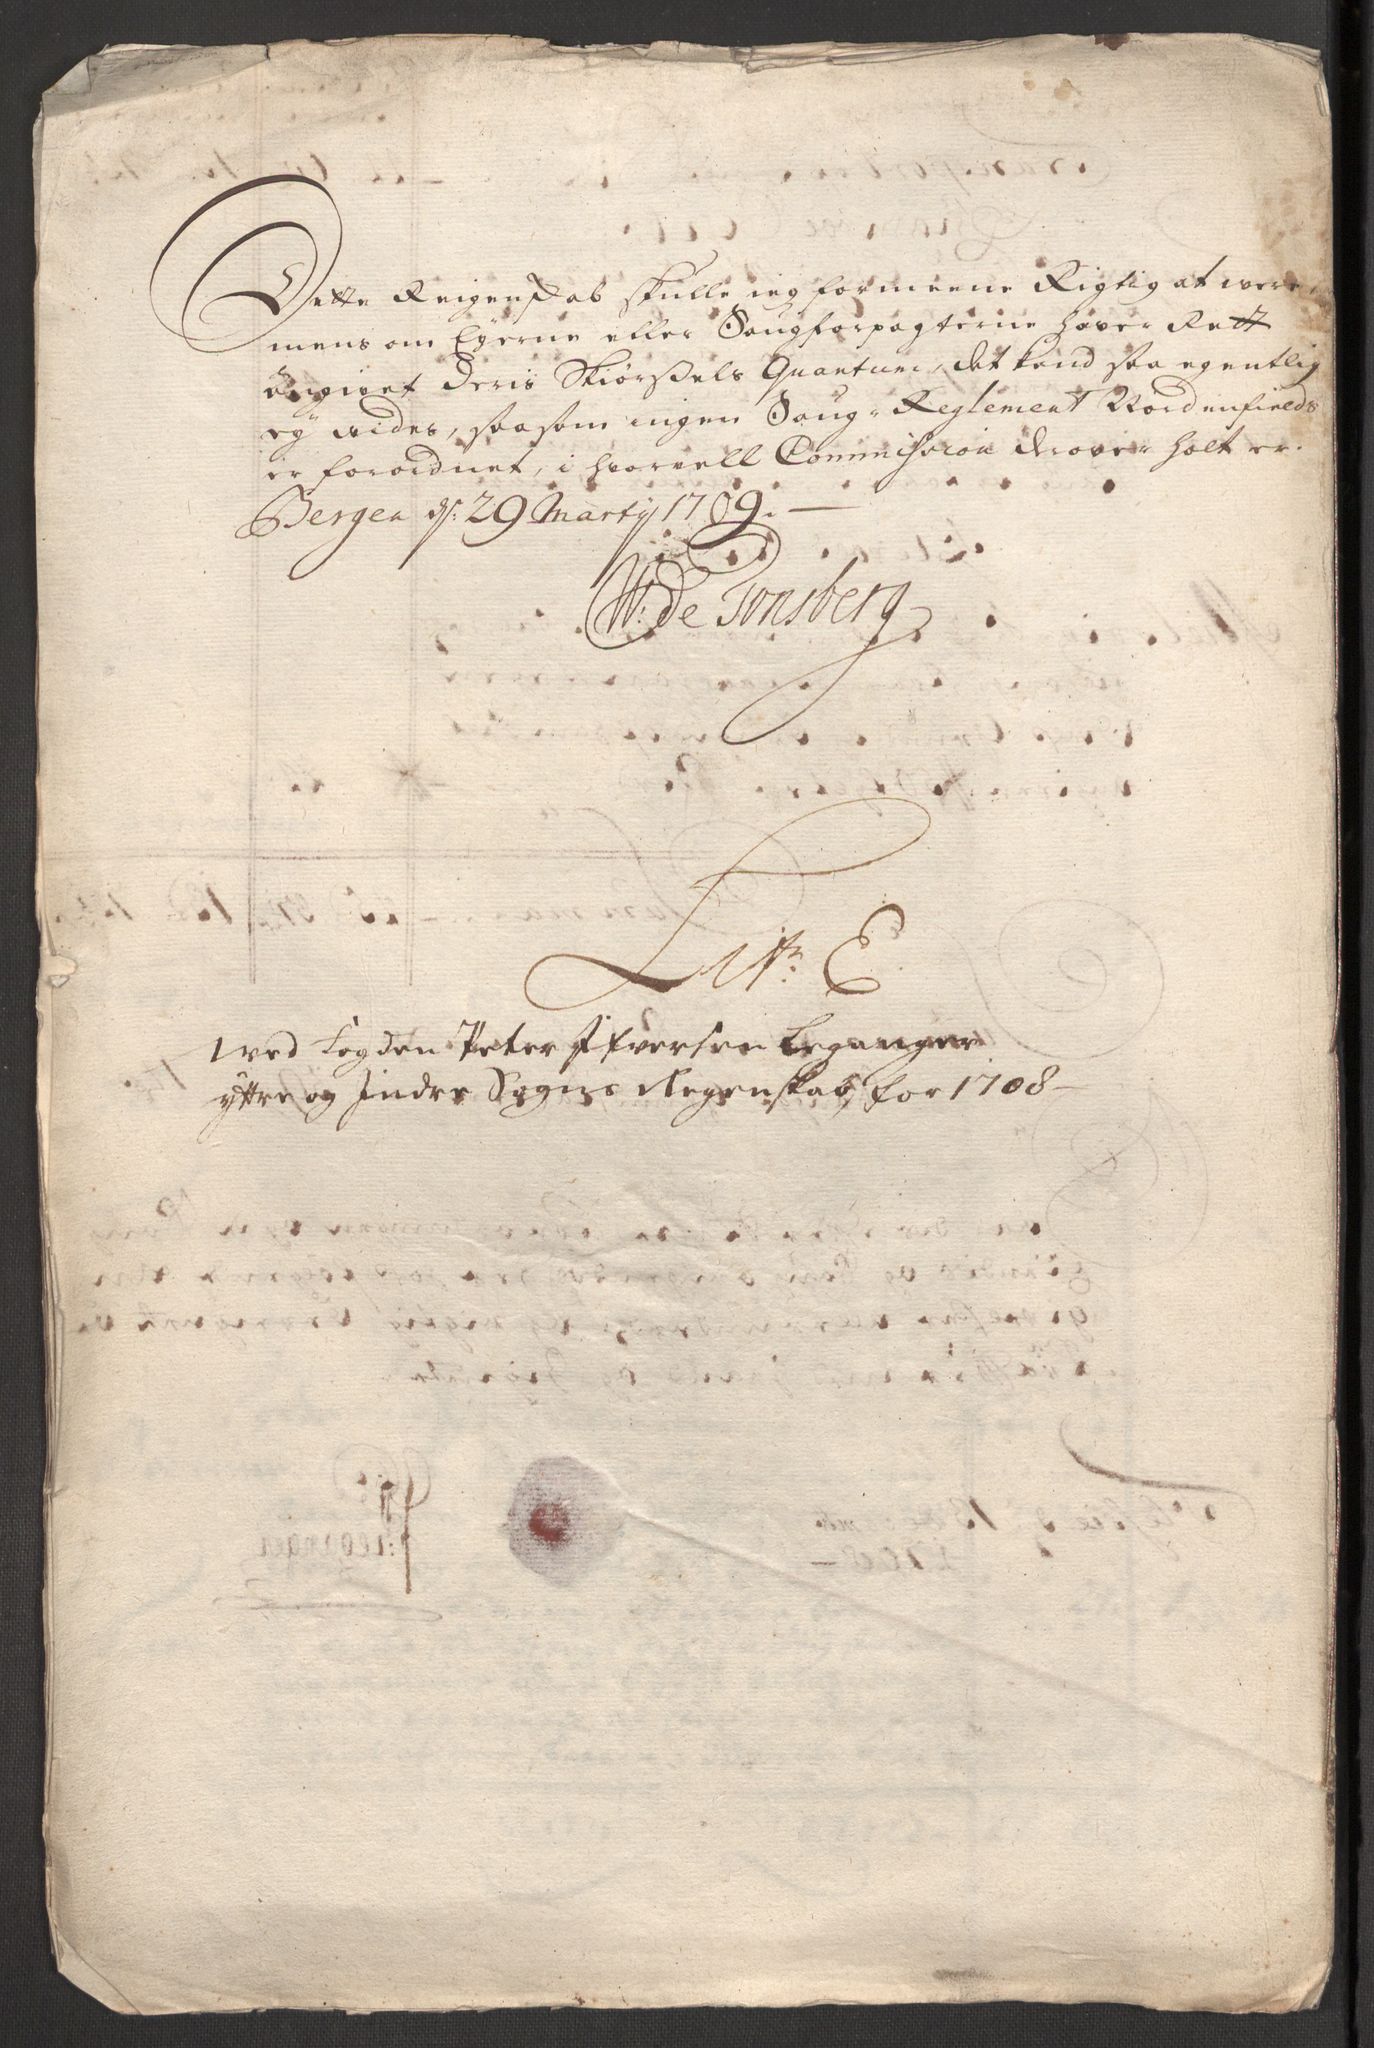 Dette Reigenskab skulle ieg formeene Rigtig at were,
mens om Eyerne eller Saugforpagterne hafver Rett
angivet deris Skiørssels Quantum, det kand saa egentlig
ey vides, saasom ingen Saug-Reglement Nordenfields
er forordnet, i hvorvell Commission derover holt er.
Bergen ds: 29 Marty 1709.
W: De Tonsberg
Litr: E
wed fogden Peter Ifversen Leganger
yttre og Indre Sogns Regenskab for 1708